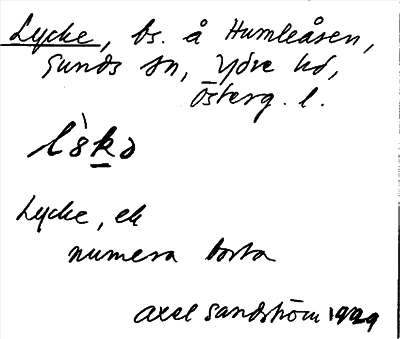 Lycke, bs. å Humleåsen,
Sunds sn, Ydre hd,
Österg. l.
Lycke, ek
numera borta
Axel Sandström 1929